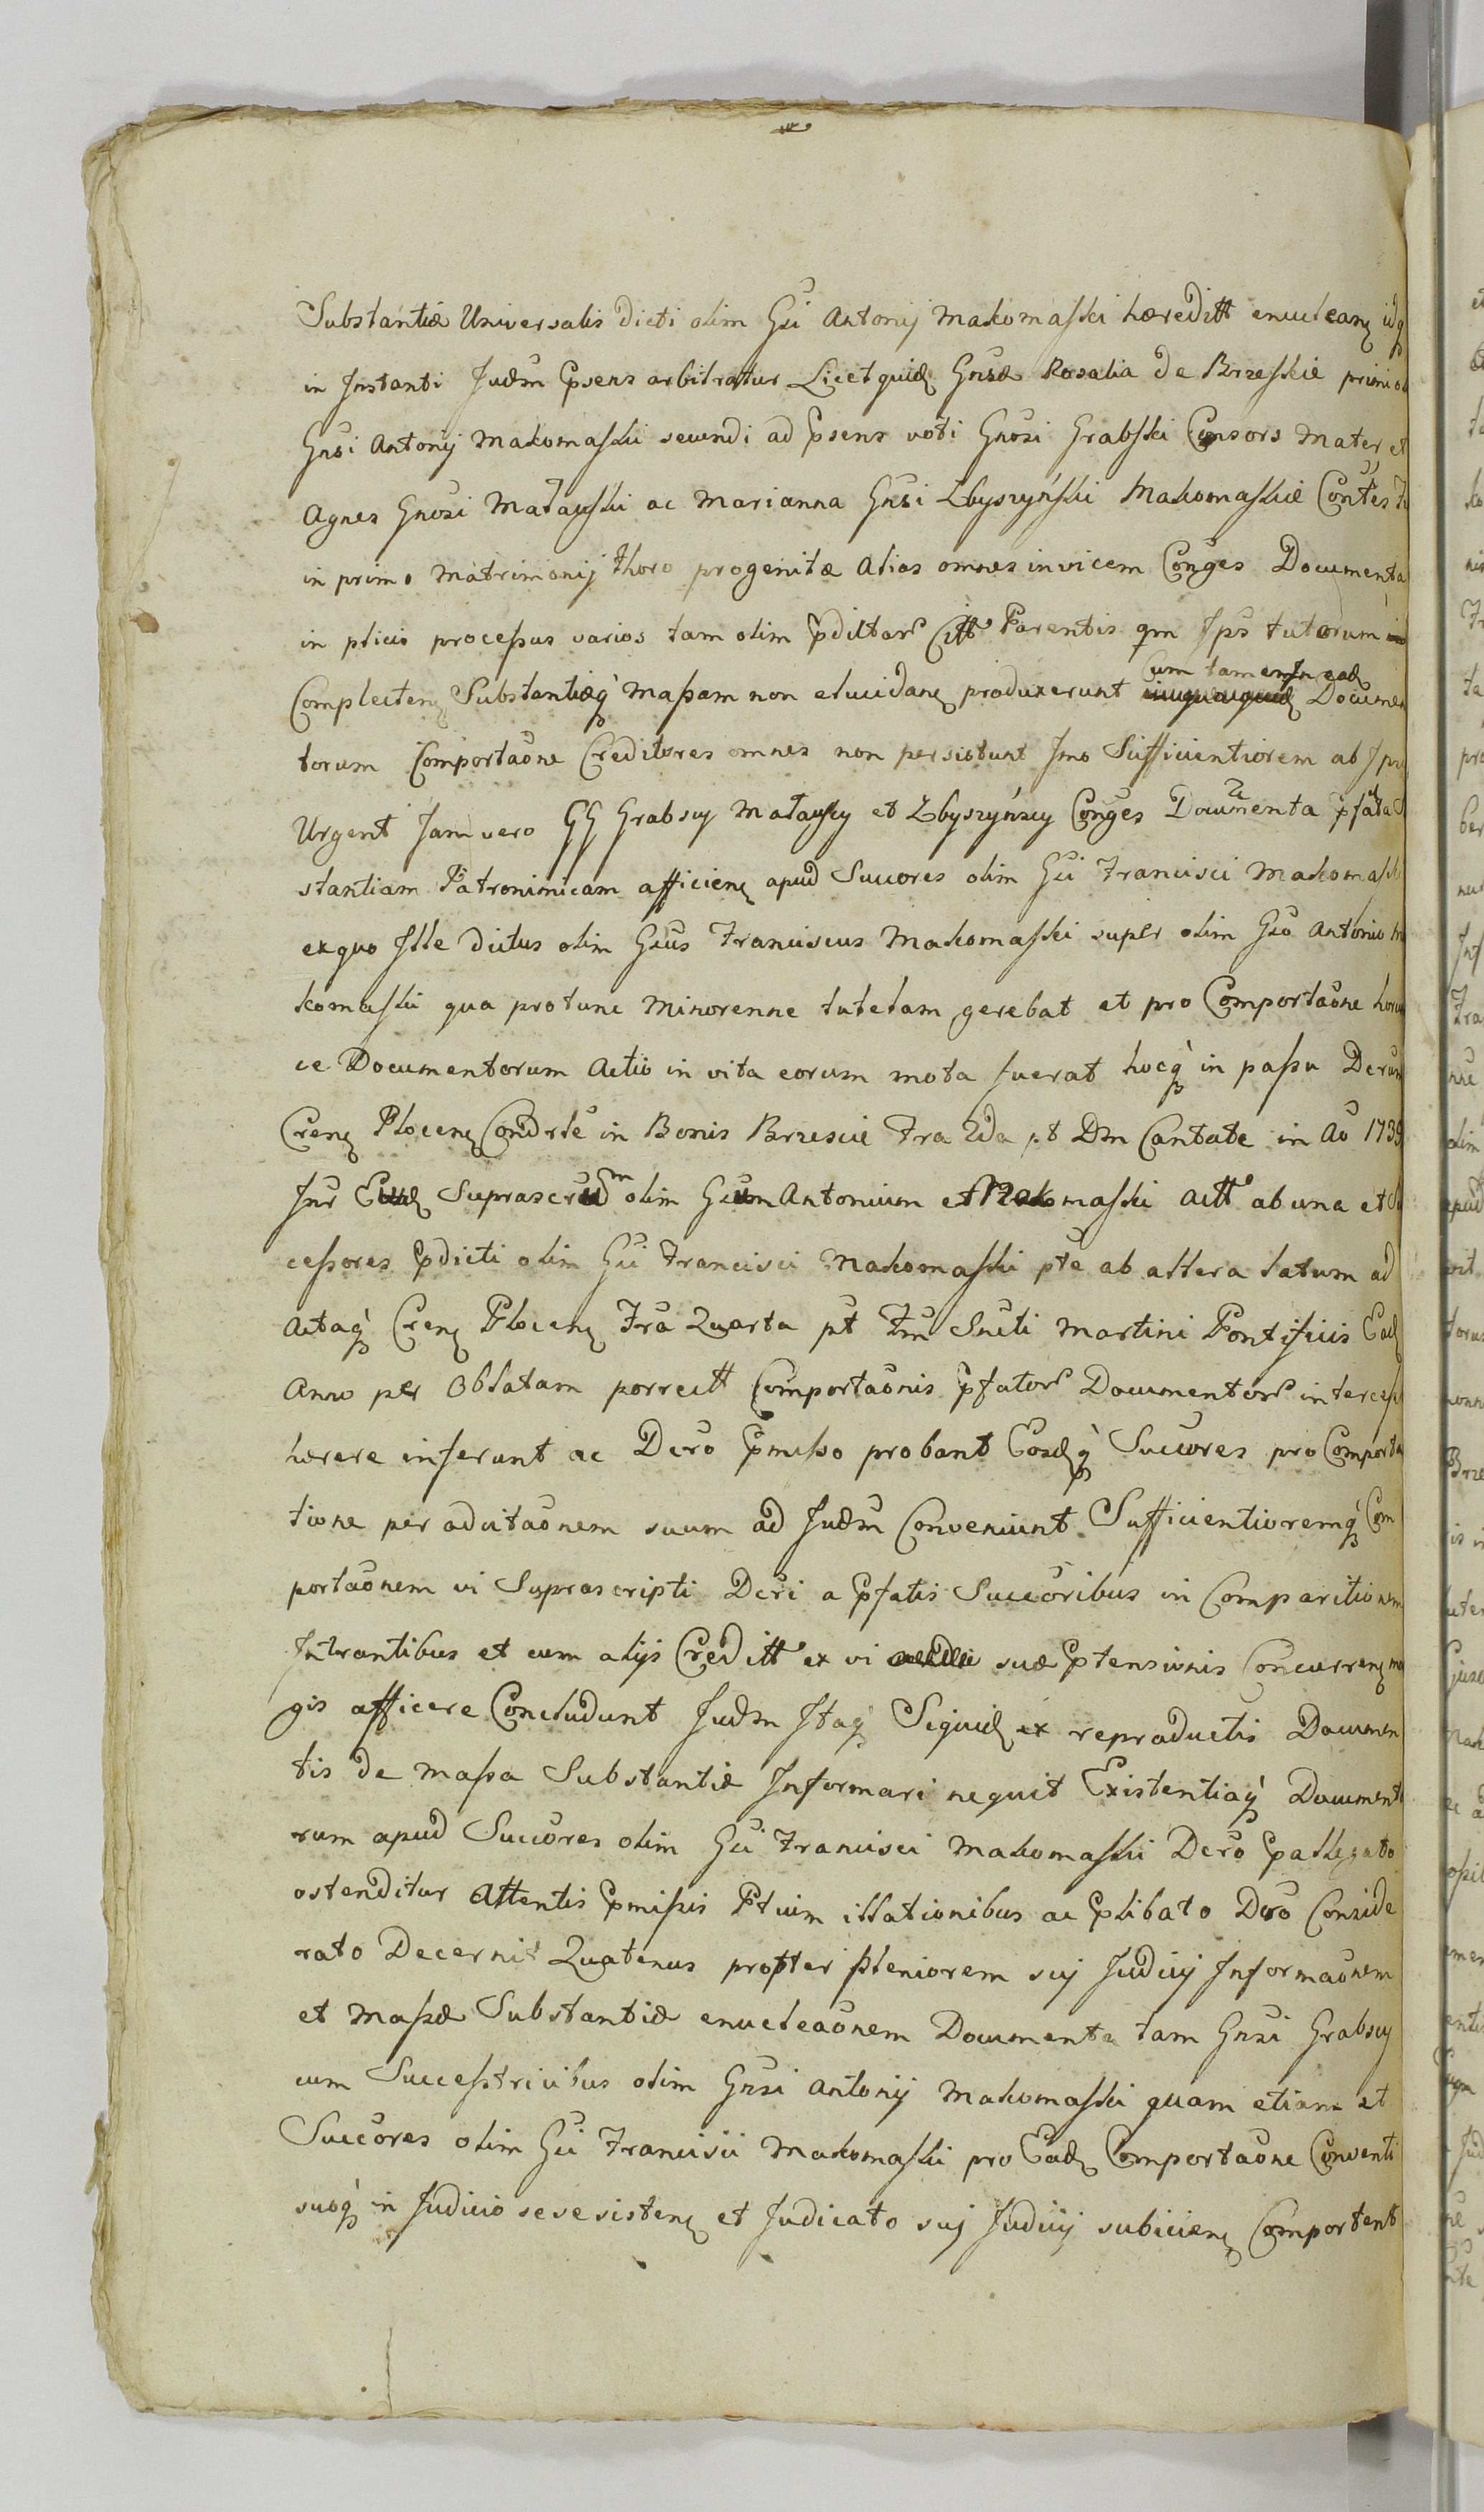 Substantiæ Universalis dicti olim Gsi Antonij Makomaski hæreditt enuclean̄ idq̄
in Instanti Judm̄ Pp̄sens arbitratur Licet quid̄ Gnsæ Rosalia de Brzeskie primi
Gnsi Antonij Makomaski secundi ad Pp̄sens voti Gnosi Grabski Consors Mater et
Agnes Gnosi Matauski ac Marianna Gnsi Zbyszyński Makomaskie Contes
in primo Matrimonij thoro progenitæ alias omnes invicem Conges Documenta
in plicis processus varios tam olim Pp̄dittor Citt Parentis qm Ips tutorum
Complecten̄ Substantiæq̀ Massam non elucidan̄ produxerunt Cum tamen In ead̄ Documen
torum Comportaōne Creditores omnes non persistunt Imo Sufficientiorem ab Ips
Urgent Jam vero GG Grabscy Matauscy et Zbyszyńscy Conges Documenta p̄fata
stantiam Patronimicam afficien̄ apud Succores olim Gsi Francisci Makomaski
ex quo Ille dictus olim Gsus Franciscus Makomaski super olim Gso Antonio Ma
komaski qua protunc Minorenne tutelam gerebat et pro Comportaōne horum
ce Documentorum Actio in vita eorum mota fuerat hocq̀ in passu Decrum
Cren̄ Plocen̄ Condrle in Bonis Brzescie Fra 2da pt Dm Cantate in Ao 1739
Inr Suprascrūm olim Gsum Antonium Makomaski Actt ab una et Su
cessores Pp̄dicti olim Gsi Francisci Makomaski pte ab altera latum ad
Actaq̀ Cren̄ Plocen̄ Fra Quarta pt Fm Sncti Martini Pontificis Ead̄
Anno per Oblatam porrectt Comportaōnis Pp̄fator Documentor intercess
hærere inferunt ac Dcro Pp̄misso probant Eosd̄q̀ Succores pro Comporta
tione per adcitaōnem suum ad Judm̄ Conveniunt Sufficientioremq̀ Com
portaōnem vi Suprascripti Dcri a Pp̄fatis Succoribus in Comparitionem
Intrantibus et cum alijs Creditt ex vi suæ Pp̄tensionis Concurren̄ ma
gis afficere Concludunt Judm Itaq̀ Siquid̄ ex reproductis Documen
tis de Massa Substantiæ Informari nequit Existentiaq̀ Documento
rum apud Succores olim Gsi Francisci Makomaski Dcro Pp̄allegato
ostenditur Attentis Pp̄missis Ptium illationibus ac Pp̄libato Dcro Conside
rato Decernit Quatenus propter pleniorem sui Judicij Informaōnem
et Massæ Substantiæ enucleaōnem Documenta tam Gnsi Grabscy
cum Successtricibus olim Gnsi Antonij Makomaski quam etiam et
Succores olim Gsi Francisci Makomaski pro Ead̄ Comportaōne Conventi
suoq̀ in Judicio sese sisten̄ et Judicato sui Judicij subicien̄ Comportent